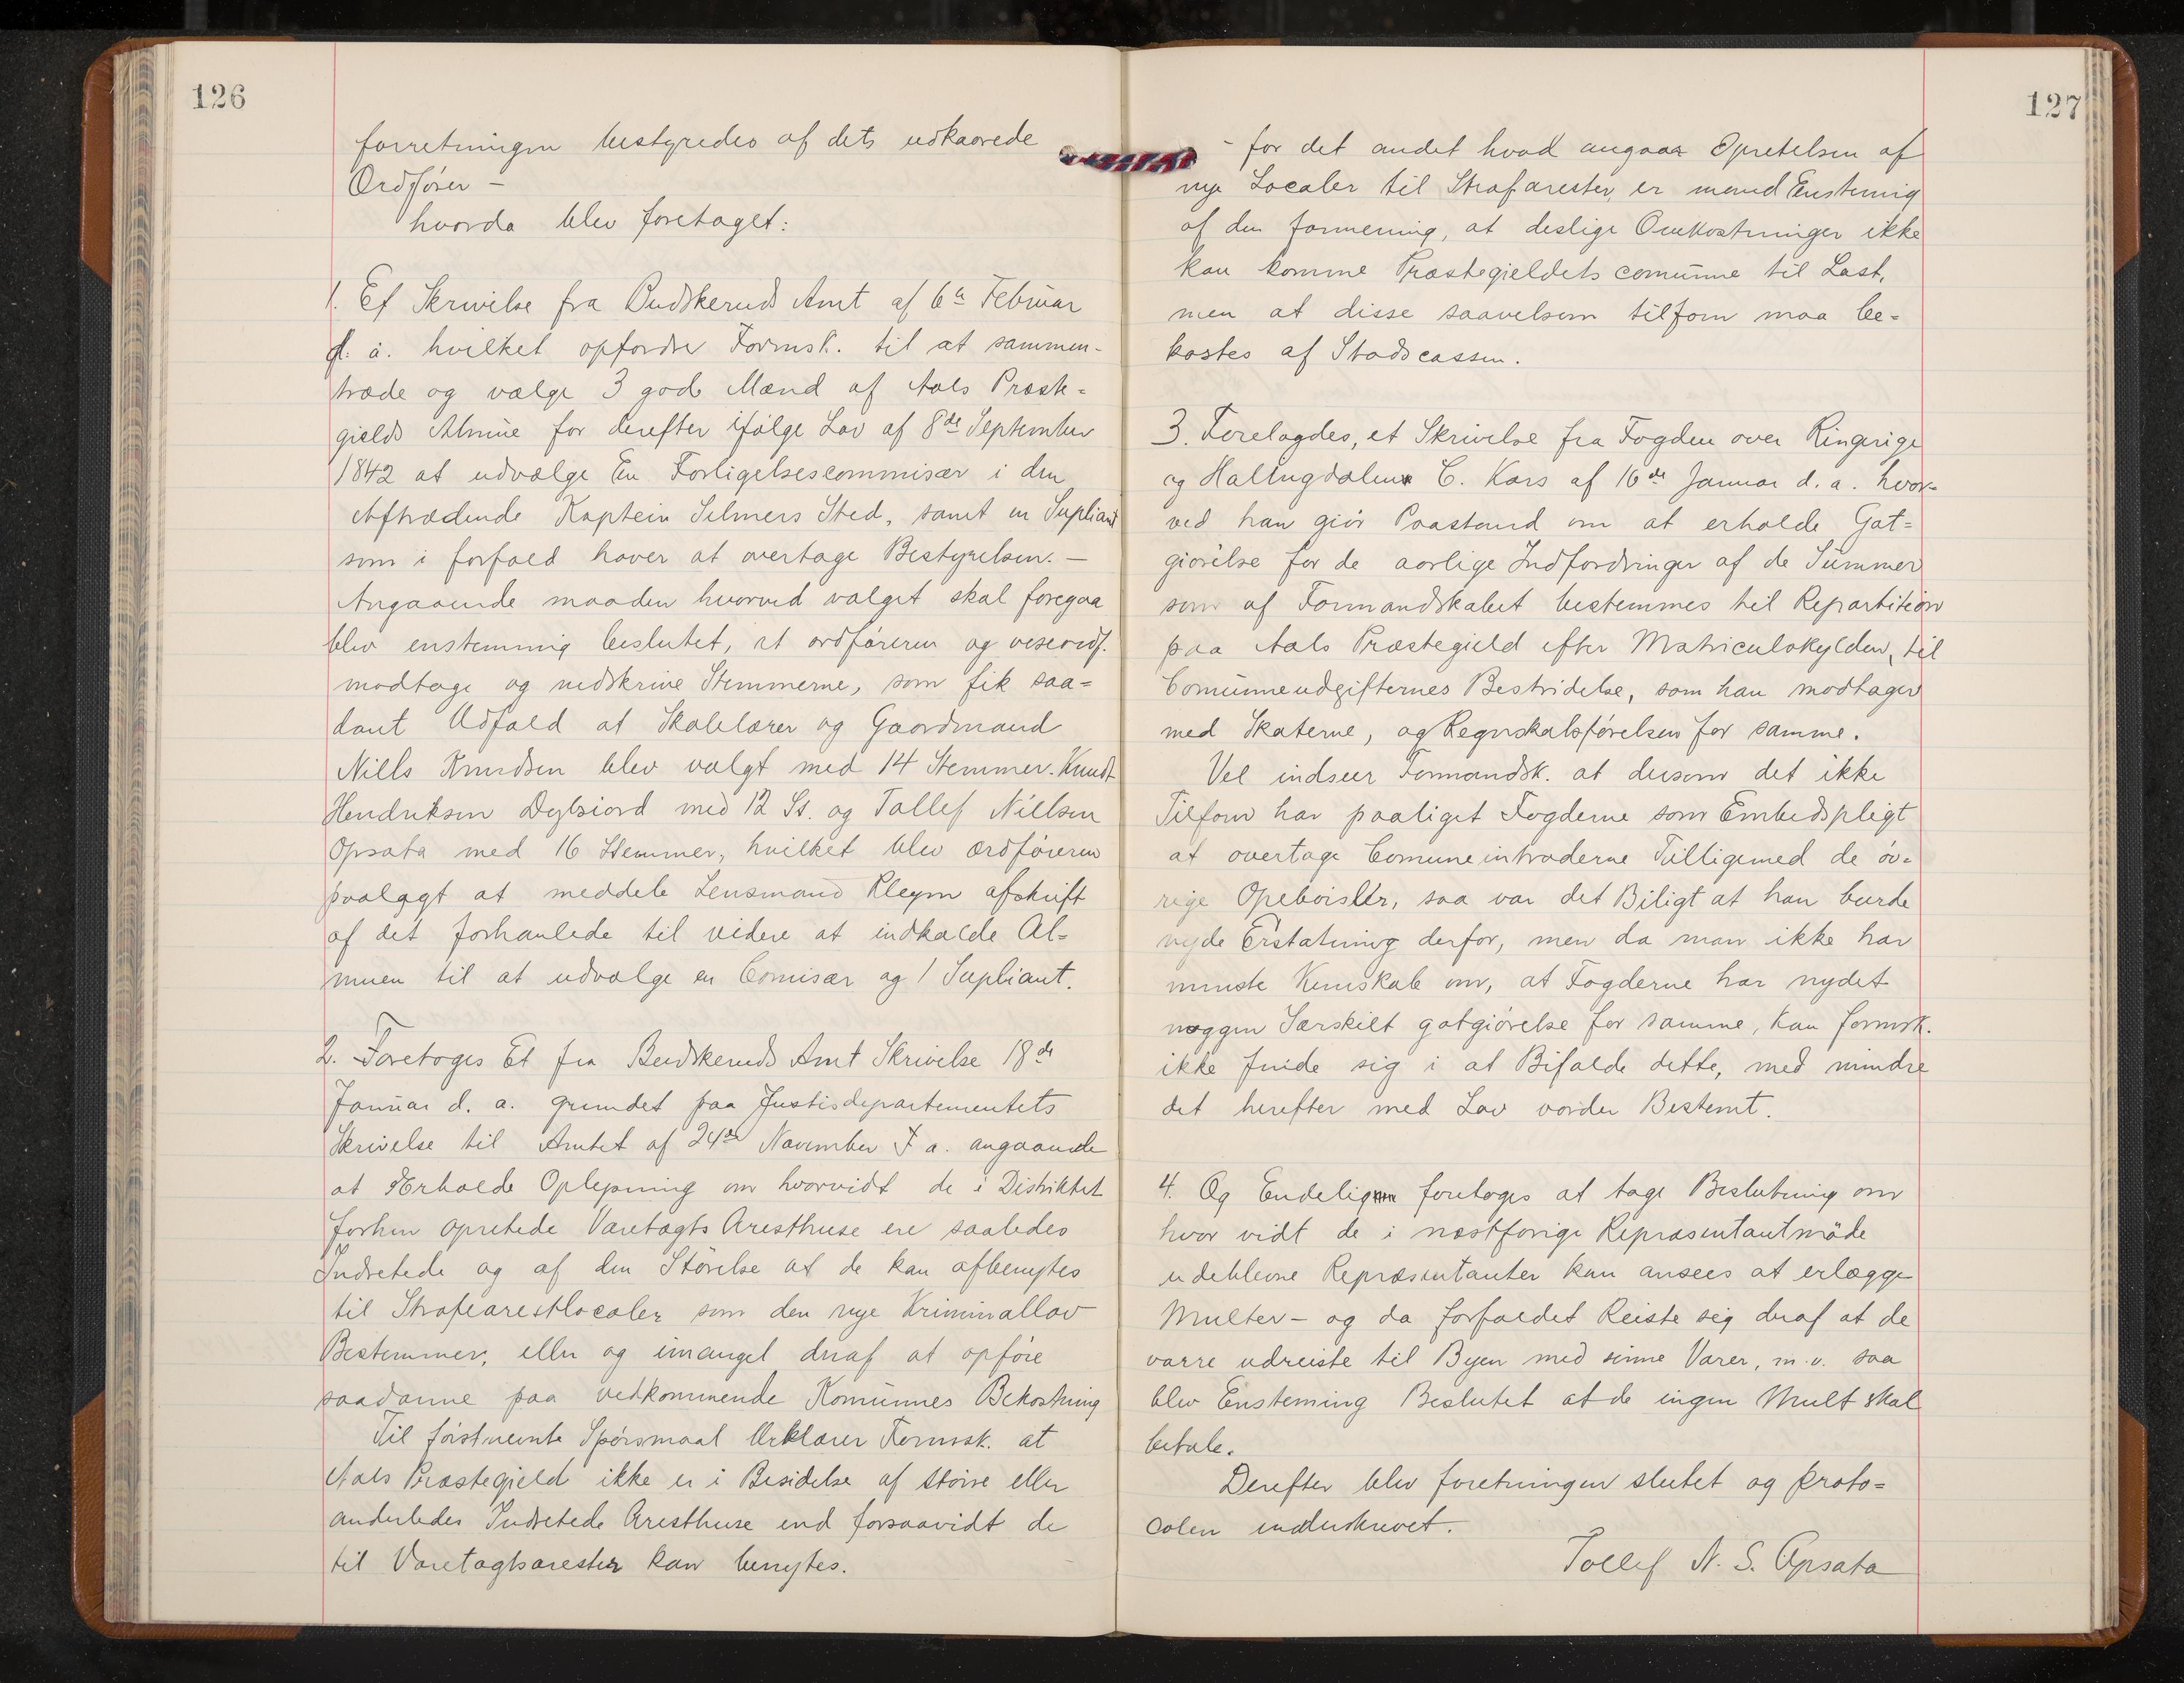 126
forretningen bestyredes af dets udkaarede
Ordfører -
hvorda blev foretaget:
1. Et Skrivelse fra Budskeruds Amt af 6te Februar
d. å. hvilket opfordre Formsk. til at sammen-
træde og vælge 3 gode Mænd af Aals Præste=
gields Almue for derefter ifølge Lov af 8de September
1842 at udvælge En Forligelsescommisær i den
Aftrædende Kaptein Selmers Sted, samt en Supliant
som i forfald haver at overtage Bestyrelsen. -
Angaaende maaden hvorved valget skal foregaa
blev enstemmig beslutet, at ordføreren og viseordf.
modtage og nedskrive Stemmerne, som fik saa=
dant Udfald at Skolelærer og Gaardmand
Nills Knudsen blev valgt med 14 Stemmer. Knudt
Hendriksen Dylsiord med 12 St. og Tollef Nillsen
Opsata med 16 Stemmer, hvilket blev ordføreren
paalagt at meddele Lensmand Kleyen afskrift
af det forhanlede til videre at indkalde Al=
muen til at udvælge en Comisær og 1 Supliant.
2. Foretoges Et fra Budskeruds Amt Skrivelse 18de
Januar d. a. grundet paa Justisdepartementets
Skrivelse til Amtet af 24de November F. a. angaaende
at Erholde Oplysning om hvorvidt de i Distriktet
forhen opretede Varetægts Aresthuse ere saaledes
Indretede og af den Størelse at de kan afbenyttes
til Strafearestlocaler som den nye Kriminallov
Bestemmer, eller og imangel deraf at opføre
saadanne paa vedkommende Komunnes Bekostning
Til førstnevnte Spørsmaal Erklærer Formsk. at
Aals Præstegield ikke er i Besidelse af større eller
anderledes Indretede Aresthuse end forsaavidt de
til Varetægtsarester kan benyttes.
127
- for det andet hvad angaar Opretelsen af
nye Localer til Strafarester, er mand Enstemig
af den formening, at deslige Omkostninger ikke
kan komme Præstegieldets comunne til Last,
men at disse saavelsom tilforn maa be=
kostes af Stadscassen.
3. Forelagdes, et Skrivelse fra Fogden over Ringerige
og Hallingdalen C. Kors af 16de Januar d. a. hvor=
ved han giør Paastand om at erholde Got=
giørelse for de aarlige Indfordringer af de Summer
som af Formandskabet bestemmes til Repartition
paa Aals Præstegield efter Matriculskylden, til
Comunneudgifternes Bestridelse, som han modtager
med Skaterne, og Regnskabsførelsen for samme.
Vel indseer Formandsk. at dersom det ikke
Tilforn har paaliget Fogderne som Embedspligt
at overtage Comuneintraderne Tilligemed de øv=
rige Opebørsler, saa var det Biligt at han burde
nyde Erstatning derfor, men da man ikke har
minste Kunskab om, at Fogderne har nydet
noggen Særskilt gotgiørelse for samme, kan formsk.
ikke finde sig i at Bifalde dette, med mindre
det herefter med Lov vorder Bestemt.
4. Og Endelig foretoges at tage Beslutning om
hvor vidt de i næstforige Repræsentantmøde
udeblevne Repræsentanter kan ansees at erlægge
Multer - og da forfaldet Reiste sig deraf at de
varre udreiste til Byen med sinne Varer, m.v. saa
blev Enstemig Beslutet at de ingen Mult skal
betale.
Derefter blev foretningen slutet og proto=
colen underskrevet.
Tollef N. S. Opsata